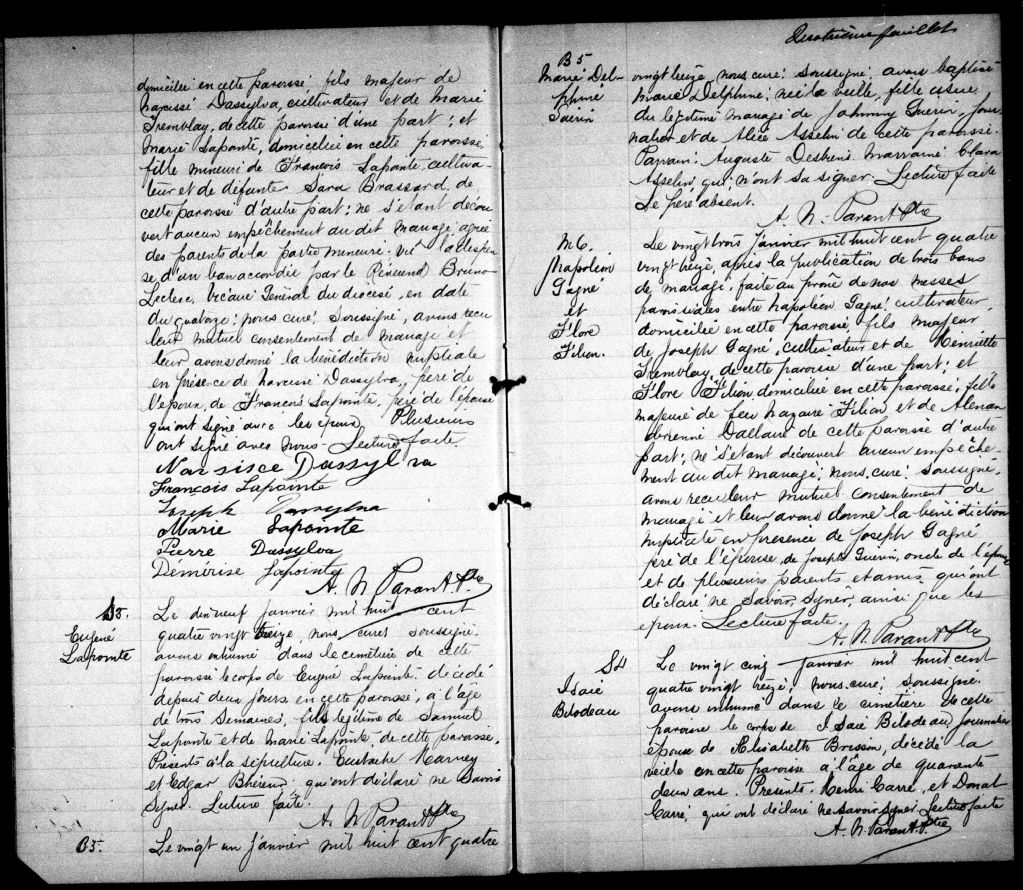 domiciliée en cette paroisse, fils majeur de
Narcisse Dassylva, cultivateur et de Marie
Tremblay, de cette paroisse d'une part; et
Marie Lapointe, domiciliée en cette paroisse,
fille mineure de François Lapointe, cultiva-
teur et de défunte Sara Brassard, de
cette paroisse d'autre part; ne s'étant décou
vert aucun empêchement au dit mariage, agréé
des parents de la partie mineure. Vu la dispen-
se d'un ban accordée par le Révérend Bruno
Leclerc, Vicaire Général du diocèse, en date
du quatorze; nous curé soussigné, avons reçu
leur mutuel consentement de mariage et
leur avons donné la bénédiction nuptiale
en présence de Narcisse Dassylva, père de
l'époux, de François Lapointe, père de l'épouse
qui ont signé avec les époux. Plusieurs
ont signé avec nous. Lecture faite.
Narsisce Dassylva
François Lapointe
Joseph Dassylva
Marie Lapointe
Pierre Dassylva
Démérise Lapointe
A. N. Parant Ptre
S3.
Eugène
Lapointe
Le dix neuf janvier mil huit cent
quatre vingt treize, nous, curé soussigné
avons inhumé dans le cimetière de cette
paroisse le corps de Eugène Lapointe, décédé
depuis deux jours en cette paroisse, à l'âge
de trois semaines, fils légitime de Samuel
Lapointe et de Marie Lapointe, de cette paroisse.
Présents à la sépulture, Eustache Harvey
et Edgar Bhéreur, qui ont déclaré ne savoir
signer. Lecture faite.
A. N. Parant Ptre
B5.
Le vingt un janvier mil huit cent quatre
Quatrième feuillet
B5
Marie Del-
phine
Guérin
vingt treize, nous curé soussigné avons baptisé
Marie Delphine, née la veille, fille issue
du légitime mariage de Johnny Guérin, jour
nalier et de Alice Asselin de cette paroisse.
Parrain: Auguste Desbiens, Marraine Clara
Asselin, qui n'ont su signer. Lecture faite
Le père absent.
A. N. Parant Ptre
M6.
Napoléon
Gagné
et
Flore
Filion.
Le vingt trois janvier mil huit cent quatre
vingt treize, après la publication de trois bans
de mariage, faite au prône de nos messes
paroissiales entre Napoléon Gagné, cultivateur,
domiciliée en cette paroisse, fils majeur
de Joseph Gagné, cultivateur et de Henriette
Tremblay, de cette paroisse d'une part; et
Flore Filion, domiciliée en cette paroisse, fille
majeure de feu Nazaire Filion et de Alexan
drienne Dallaire de cette paroisse d'autre
part; ne s'étant découvert aucun empêche-
ment au dit mariage; nous, curé soussigné,
avons reçu leur mutuel consentement de
mariage et leur avons donné la bénédiction
nuptiale en présence de Joseph Gagné
père de l'épouse, de Joseph Guérin, oncle de l'époux
et de plusieurs parents et amis, qui ont
déclaré ne savoir signer, ainsi que les
époux. Lecture faite.
A. N. Parant Ptre
S4
Isaïe
Bilodeau
Le vingt cinq janvier mil huit cent
quatre vingt treize, nous, curé soussigné
avons inhumé dans le cimetière de cette
paroisse le corps de Isaïe Bilodeau, journalier
époux de Elisabeth Brisson, décédé la
veille en cette paroisse à l'âge de quarante
deux ans. Présents, Henri Carré, et Donat
Carré, qui ont déclaré ne savoir signer. Lecture faite
A. N. Parant Ptre